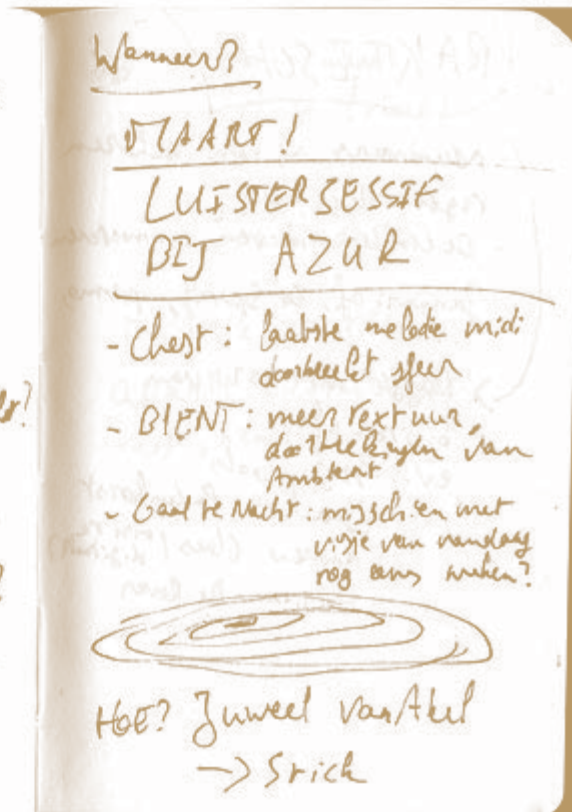 Wanneer?
MAART!
LUISTERSESSIE
BIJ AZUR
- Chest: laatste melodie midi
doorbreekt sfeer
- BIENT: meer textuur,
van
Ambient
- Gaat te Nacht: misschien met
visie van vandaag
nog eens maken?
HOE? Juweel Van Akel
->